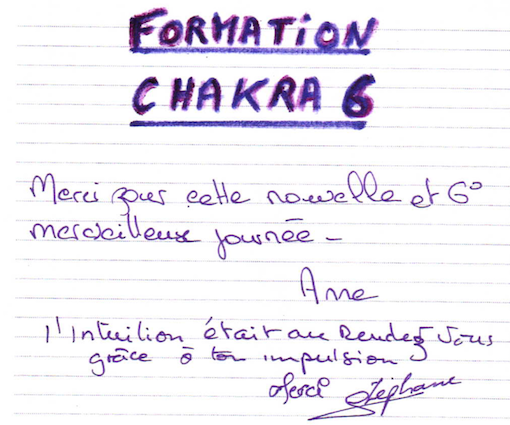 FORMATION
CHAKRA 6
Merci pour cette nouvelle et 6°
merveilleuse journée -
Anne
l'intuition était au Rendez Vous
grâce à ton impulsion
Merci Stéphane